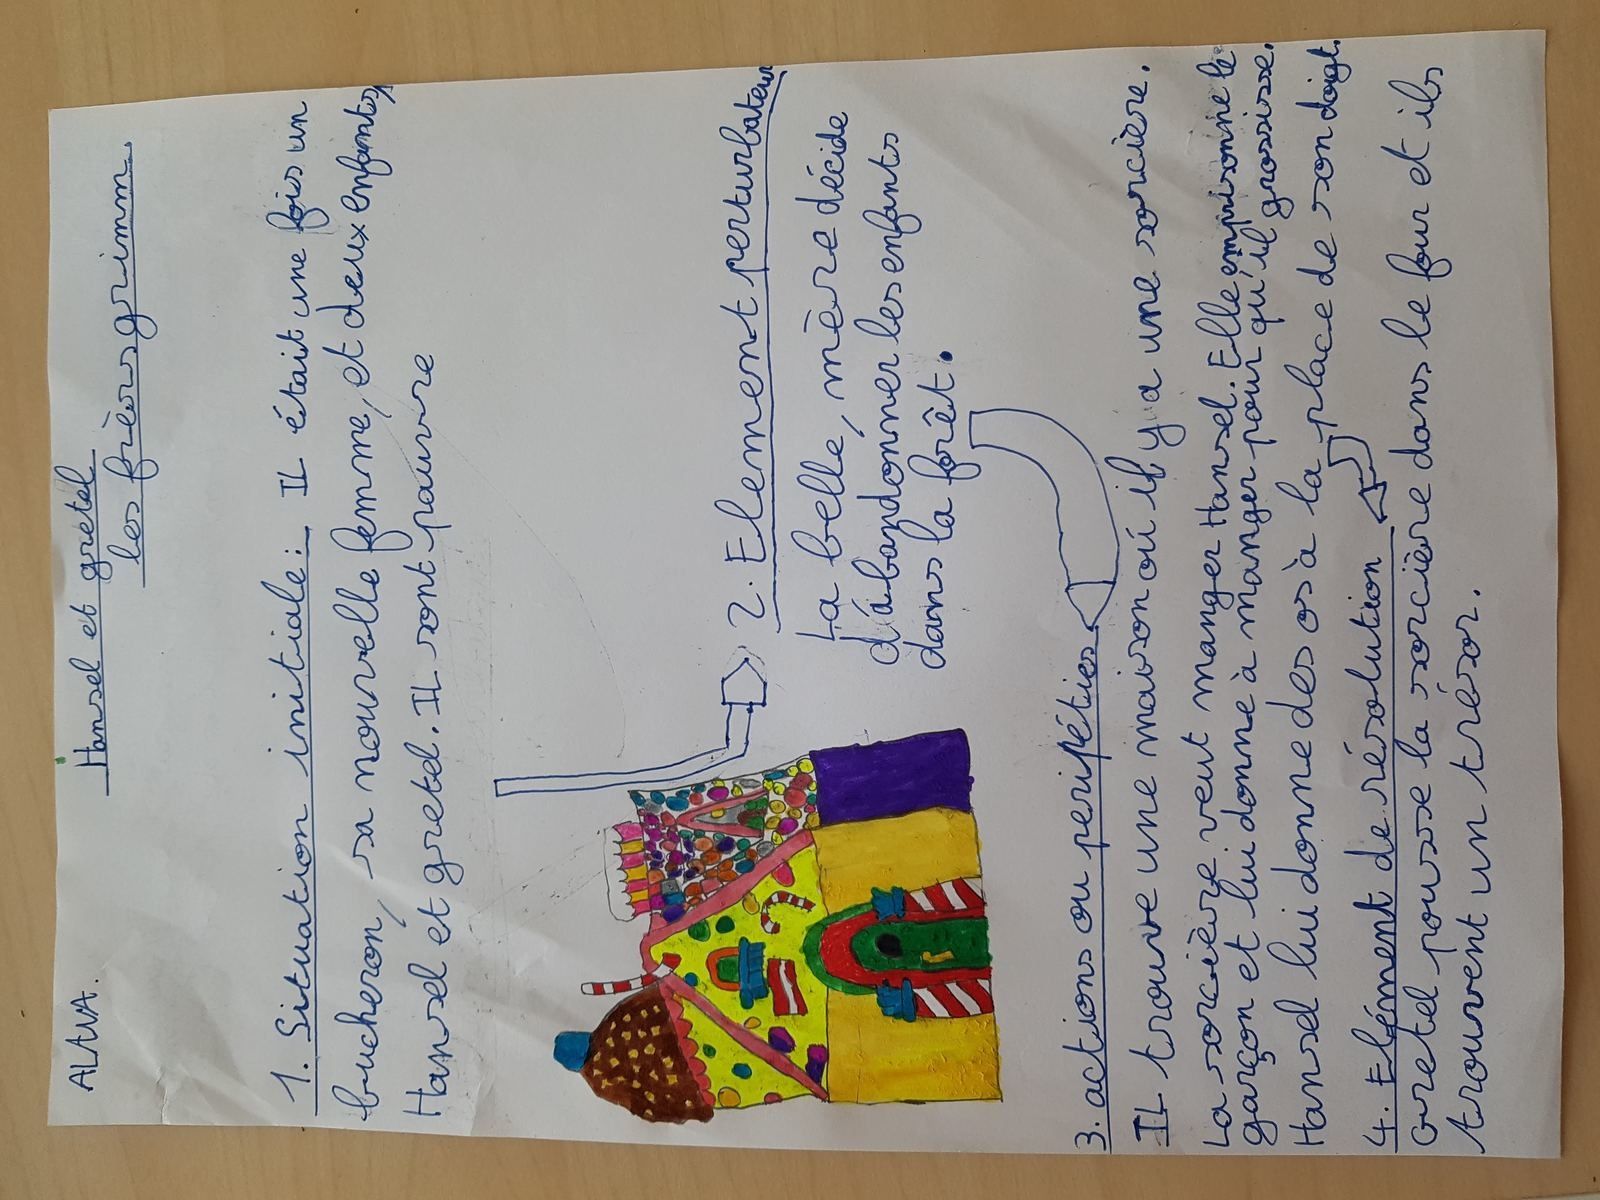 ALWA.
Hansel et gretel
les frères grimm.
1. Situation initiale : IL était une fois un
bucheron, sa nouvelle femme, et deux enfants,
Hansel et gretel. IL sont pauvre
2. Element perturbateur
La belle, mère décide
d'abandonner les enfants
dans la forêt.
3. actions ou peripéties
IL trouve une maison où il y a une sorcière.
La sorcière veut manger Hansel. Elle emprisonne le
garçon et lui donne à manger pour qu'il grossisse.
Hansel lui donne des os à la place de son doigt.
4. Elément de résolution
Gretel pousse la sorcière dans le four et ils
trouvent un trésor.